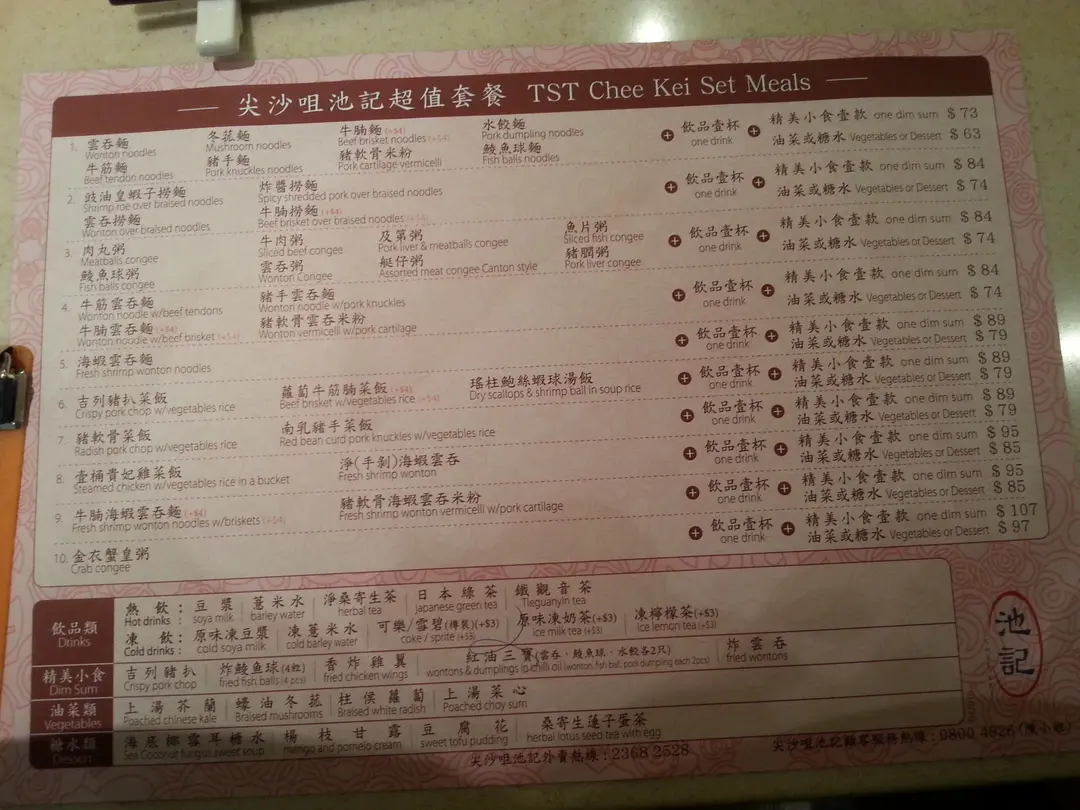 尖沙咀池記超值套餐 TST Chee Kei Set Meals
1. 雲吞麵 冬菇麵 牛腩麵 (+$4) 水餃麵
Wonton noodles Mushroom noodles Beef brisket noodles (+$4) Pork dumpling noodles
牛筋麵 豬手麵 豬軟骨米粉 鯪魚球麵
Beef tendon noodles Pork knuckles noodles Pork cartilage vermicelli Fish balls noodles
+ 飲品壹杯 one drink + 精美小食壹款 one dim sum $ 73
油菜或糖水 Vegetables or Dessert $ 63
2. 豉油皇蝦子撈麵 炸醬撈麵
Shrimp roe over braised noodles Spicy shredded pork over braised noodles
雲吞撈麵 牛腩撈麵 (+$4)
Wonton over braised noodles Beef brisket over braised noodles (+$4)
+ 飲品壹杯 one drink + 精美小食壹款 one dim sum $ 84
油菜或糖水 Vegetables or Dessert $ 74
3. 肉丸粥 牛肉粥 及第粥 魚片粥
Meatballs congee Sliced beef congee Pork liver & meatballs congee Sliced fish congee
鯪魚球粥 雲吞粥 艇仔粥 豬膶粥
Fish balls congee Wonton Congee Assorted meat congee Canton style Pork liver congee
+ 飲品壹杯 one drink + 精美小食壹款 one dim sum $ 84
油菜或糖水 Vegetables or Dessert $ 74
4. 牛筋雲吞麵 豬手雲吞麵
Wonton noodle w/beef tendons Wonton noodle w/pork knuckles
牛腩雲吞麵 (+$4) 豬軟骨雲吞米粉
Wonton noodle w/beef brisket (+$4) Wonton vermicelli w/pork cartilage
+ 飲品壹杯 one drink + 精美小食壹款 one dim sum $ 84
油菜或糖水 Vegetables or Dessert $ 74
5. 海蝦雲吞麵
Fresh shrimp wonton noodles
+ 飲品壹杯 one drink + 精美小食壹款 one dim sum $ 89
油菜或糖水 Vegetables or Dessert $ 79
6. 吉列豬扒菜飯 蘿蔔牛筋腩菜飯 (+$4) 瑤柱鮑絲蝦球湯飯
Crispy pork chop w/vegetables rice Beef brisket w/vegetables rice (+$4) Dry scallops & shrimp ball in soup rice
+ 飲品壹杯 one drink + 精美小食壹款 one dim sum $ 89
油菜或糖水 Vegetables or Dessert $ 79
7. 豬軟骨菜飯 南乳豬手菜飯
Radish pork chop w/vegetables rice Red bean curd pork knuckles w/vegetables rice
+ 飲品壹杯 one drink + 精美小食壹款 one dim sum $ 89
油菜或糖水 Vegetables or Dessert $ 79
8. 壹桶貴妃雞菜飯 淨(手剝)海蝦雲吞
Steamed chicken w/vegetables rice in a bucket Fresh shrimp wonton
+ 飲品壹杯 one drink + 精美小食壹款 one dim sum $ 95
油菜或糖水 Vegetables or Dessert $ 85
9. 牛腩海蝦雲吞麵 (+$4) 豬軟骨海蝦雲吞米粉
Fresh shrimp wonton noodles w/briskets (+$4) Fresh shrimp wonton vermicelli w/pork cartilage
+ 飲品壹杯 one drink + 精美小食壹款 one dim sum $ 95
油菜或糖水 Vegetables or Dessert $ 85
10. 金衣蟹皇粥
Crab congee
+ 飲品壹杯 one drink + 精美小食壹款 one dim sum $ 107
油菜或糖水 Vegetables or Dessert $ 97
飲品類 Drinks
熱飲: 豆漿 薏米水 淨桑寄生茶 日本綠茶 鐵觀音茶
Hot drinks: soya milk barley water herbal tea Japanese green tea Tieguanyin tea
凍飲: 原味凍豆漿 凍薏米水 可樂/雪碧(樽裝)(+$3) 原味凍奶茶(+$3) 凍檸檬茶(+$3)
Cold drinks: cold soya milk cold barley water coke / sprite (+$3) ice milk tea (+$3) ice lemon tea (+$3)
精美小食 Dim Sum
吉列豬扒 炸鯪魚球(4粒) 香炸雞翼 紅油三寶(雲吞、鯪魚球、水餃各2只) 炸雲吞
Crispy pork chop fried fish balls (4 pcs) fried chicken wings wontons & dumplings in chilli oil (wonton, fish ball, pork dumpling each 2pcs) fried wontons
油菜類 Vegetables
上湯芥蘭 蠔油冬菇 柱侯蘿蔔 上湯菜心
Poached chinese kale Braised mushrooms Braised white radish Poached choy sum
糖水類 Dessert
海底椰雪耳糖水 楊枝甘露 豆腐花 桑寄生蓮子蛋茶
Sea Coconut fungus sweet soup mango and pomelo cream sweet tofu pudding herbal lotus seed tea with egg
池記
尖沙咀池記外賣熱線：2368 2528
尖沙咀池記顧客服務熱線：9800 4926 (陳小姐)